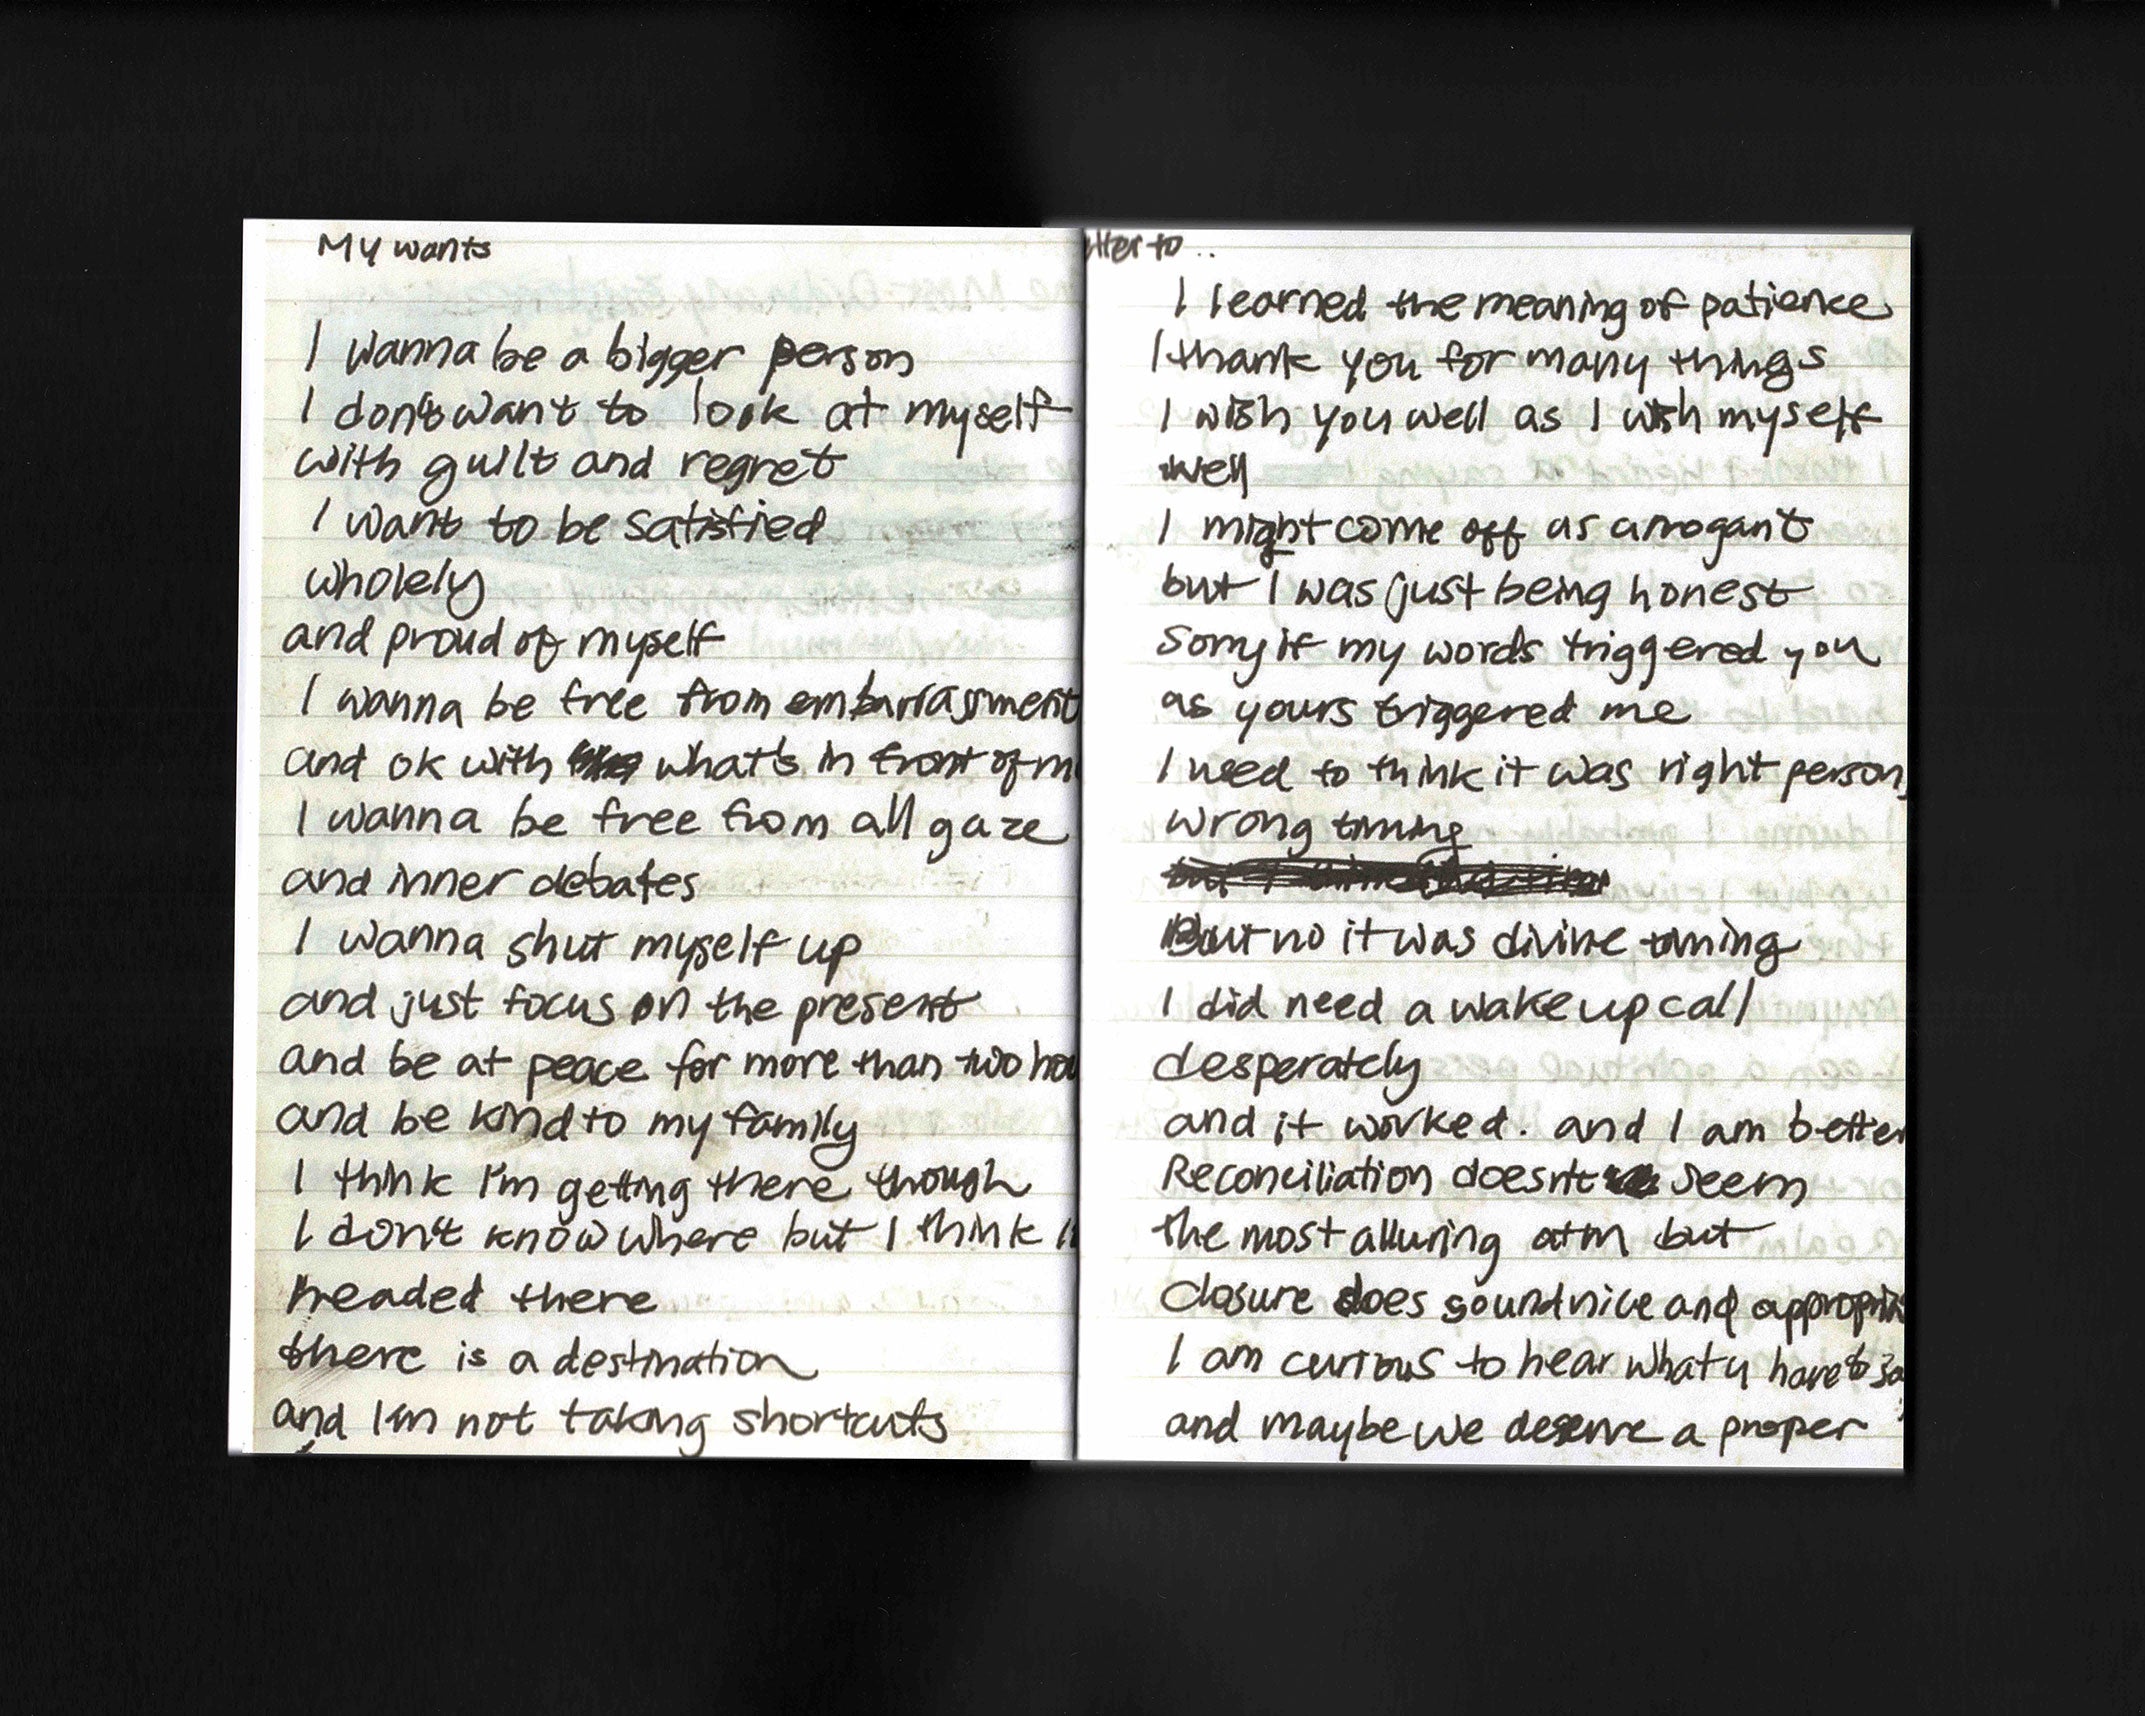 My wants
I wanna be a bigger person
I don't want to look at myself
with guilt and regret
I want to be satisfied
wholely
and proud of myself
I wanna be free from embarrassment
and ok with what's in front of m
I wanna be free from all gaze
and inner debates
I wanna shut myself up
and just focus on the present
and be at peace for more than two hou
and be kind to my family
I think I'm getting there though
I don't know where but I think I
headed there
there is a destination
and I'm not taking shortcuts
etter to ..
I learned the meaning of patience
I thank you for many things
I wish you well as I wish myself
well
I might come off as arrogant
but I was just being honest
Sorry if my words triggered you
as yours triggered me
I used to think it was right person,
wrong timing
But no it was divine timing
I did need a wake up call
desperately
and it worked. and I am better
Reconciliation doesn't seem
the most alluring atm but
closure does sound nice and appropria
I am curious to hear what u have to sa
and maybe we deserve a proper